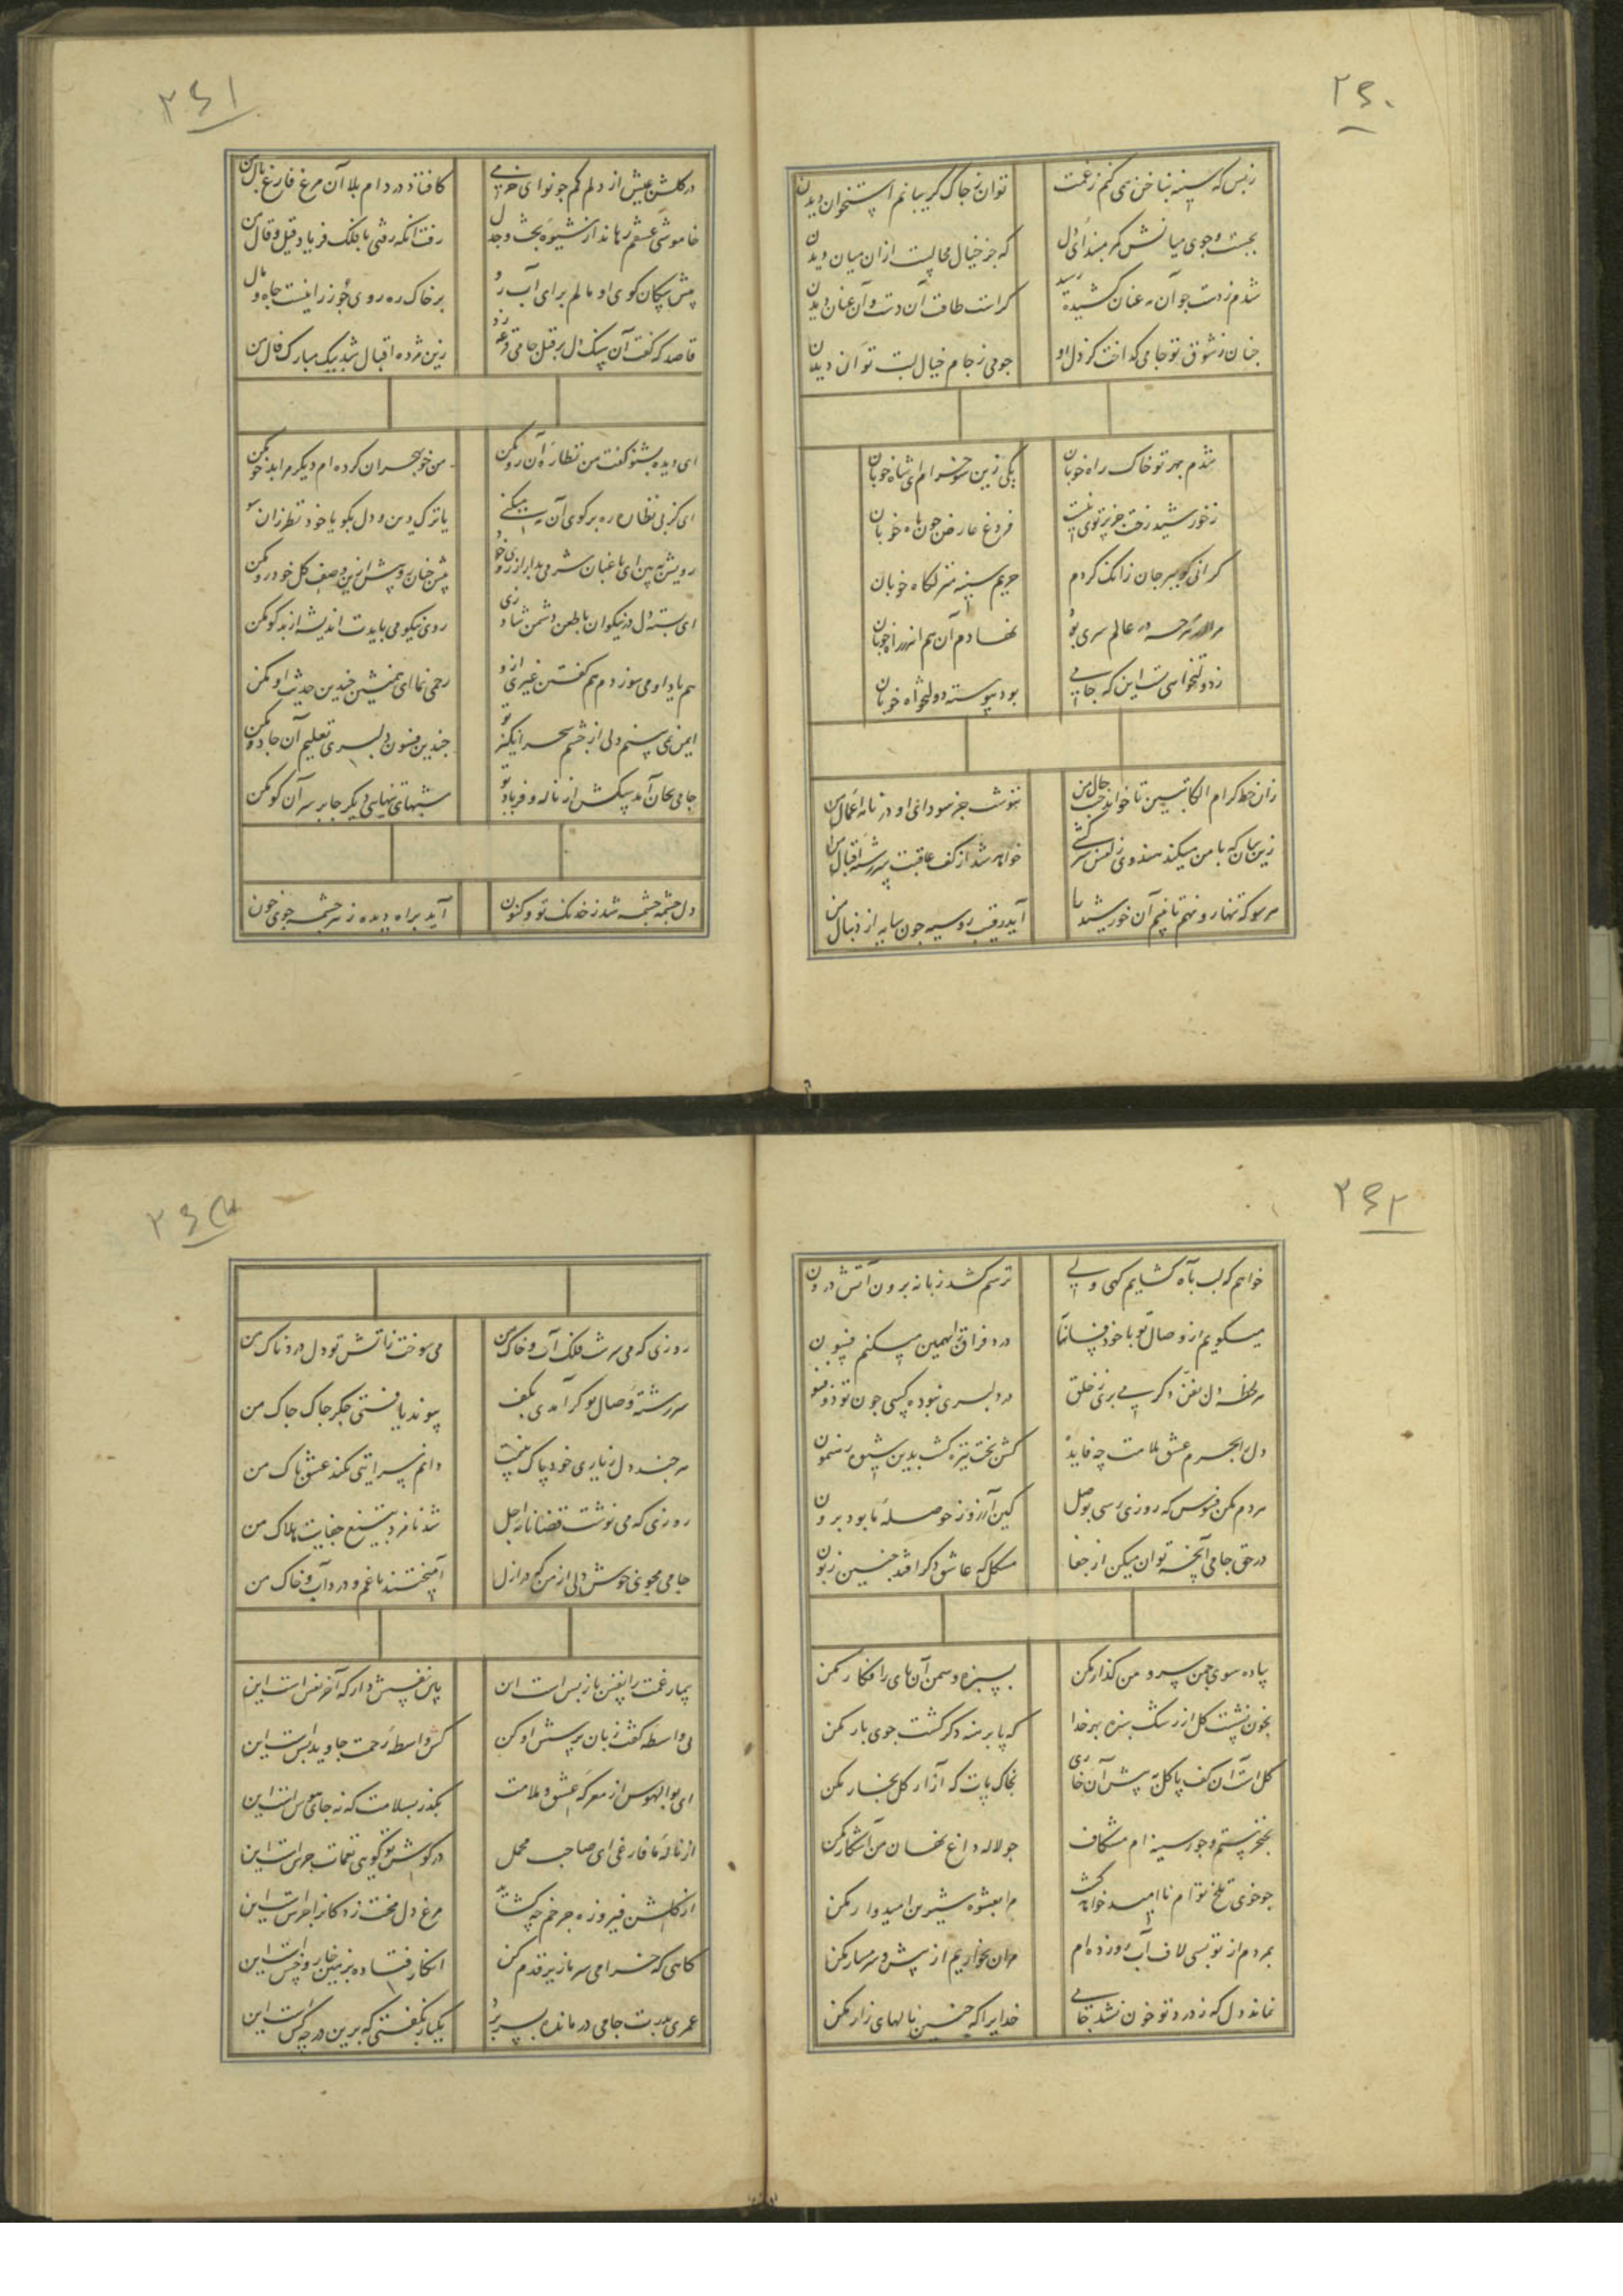 ۲۶۰
ز بس که سینه بناخن همی کنم ز غمت
توان ز چاک گریبانم استخوان دیدن
بجست و جوی میانش کمر مبند ای دل
که جز خیال محالیست ازان میان دیدن
شدم ز دست چو آن مه عنان کشیده رسید
کراست طاقت آن دست و آن عنان دیدن
چنان ز شوق تو جامی گداخت کز دل او
چو می ز جام خیال لبت توان دیدن
شدم بهر تو خاک راه خوبان
یکی زین سو خرام ای شاه خوبان
ز خورشید رخت جز پرتوی نیست
فروغ عارض چون ماه خوبان
گرانی کو ببر جان زانک کردم
حریم سینه منزلگاه خوبان
مرا در هر چه در عالم سری بود
نهادم آن هم اندر راه خوبان
ز دولتخواهی تست این که جامی
بود پیوسته دولتخواه خوبان
زان خط کرام الکاتبین تا خواند حسب حال من
ننوشت جز سودای او در نامه اعمال من
زین سان که با من میکند هندوی زلفش سرکشی
خواهد شد از کف عاقبت سررشته اقبال من
هر سو که تنها رو نهم تا بینم آن خورشید را
آید رقیب روسیه چون سایه از دنبال من
۲۶۱
در گلشن عیش از دلم کم جو نوای خرمی
کافتاد در دام بلا آن مرغ فارغ بال من
خاموشی عشقم رهاند از شیوه بحث و جدل
رفت آنکه رفتی با فلک فریاد قیل و قال من
پیش سگان کوی او مالم برای آب رو
بر خاک ره روی چو زر اینست جاه و مال من
قاصد که گفت آن سنگدل بر قتل جامی زد رقم
زین مژده اقبال شد پیک مبارک فال من
ای دیده بشنو گفت من نظاره آن رو مکن
من خو بهجران کرده ام دیگر مرا بدخو مکن
ای کز پی نظاره ره بر کوی آن بت میکنی
یا ترک دین و دل بگو یا خود نظر زان سو
رویش ببین ای باغبان شرمی بدار از روی خود
پیش چنان رو بیش ازین وصف گل خودرو مکن
ای بسته دل در نیکوان با طعن دشمن شاد زی
روی نیکو می بایدت اندیشه از بدگو مکن
هم یاد او می سوزدم هم گفتن غیری ازو
رحمی نما ای همنشین چندین حدیث او مکن
ایمن نمی بینم دلی از چشم سحرانگیز تو
چندین فسون دلبری تعلیم آن جادو مکن
جامی بجان آمد سگش از ناله و فریاد تو
شبهای تنهایی دیگر جا بر سر آن کو مکن
دل چشمه چشمه شد ز خدنگ تو و کنون
آید براه دیده ز هر چشمه جوی خون
۲۶۲
خواهم که لب بآه گشایم گهی ولی
ترسم کشد زبانه برون آتش درون
میگویم از وصال تو با خود فسانها
درد فراق را بهمین میکنم فسون
هر لحظه دل بفن دگر می بری ز خلق
در دلبری نبوده کسی چون تو ذوفنون
دل را بجرم عشق ملامت چه فایده
کش بخت تیره گشت بدین شیوه رهنمون
مردم مکن فسوس که روزی رسی بوصل
کین آرزو ز حوصله ما بود برون
در حق جامی آنچه توان میکن از جفا
مشکل که عاشق دگر افتد چنین زبون
پیاده سوی چمن سرو من گذار مکن
بسبزه و سمن آن پای را فگار مکن
بخون نشست گل از رشک سبزه بهر خدا
که پا برهنه دگر گشت جویبار مکن
گل است آن کف پا گل به پیش آن خاری
بخاک پات که آزار گل بخار مکن
بخنجر ستم و جور سینه ام مشکاف
چو لاله داغ نهان من آشکار مکن
چو خوی تلخ توام ناامید خواهد کشت
مرا بعشوه شیرین امیدوار مکن
بمردم از تو بسی لاف آب رو زده ام
مران بخواریم از پیش و شرمسار مکن
نماند دل که ز درد تو خون نشد جامی
خدایرا که چنین نالهای زار مکن
۲۶۳
روزی که می سرشت فلک آب و خاک من
می سوخت ز آتش تو دل دردناک من
سررشته وصال تو گر آمدی بکف
پیوند یافتی جگر چاک چاک من
هر چند دل ز یاری خود پاک نیست
دانم سرایتی بکند عشق پاک من
روزی که می نوشت قضا نامه اجل
شد نامزد بتیغ جفایت هلاک من
جامی مجوی خوش دلی از من که در ازل
آمیختند با غم و درد آب و خاک من
بیمار غمت را نفس باز پس است این
پاس نفسش دار که آخر نفس است این
بی واسطه گفت زبان پرسش او کن
کش واسطه رحمت جاوید بس است این
ای بوالهوس از معرکه عشق و ملامت
بگذر بسلامت که نه جای هوس است این
از ناله ما فارغی ای صاحب محمل
در گوش تو گویی نغمات جرس است این
از گلشن فیروزه چرخم چه گشاید
مرغ دل محنت زده را قفس است این
گاهی که خرامی سر ما زیر قدم کن
انگار فتاده بزمین خار و خس است این
عمری بدرت جامی درمانده بسر برد
یکبار نگفتی که برین در چه کس است این